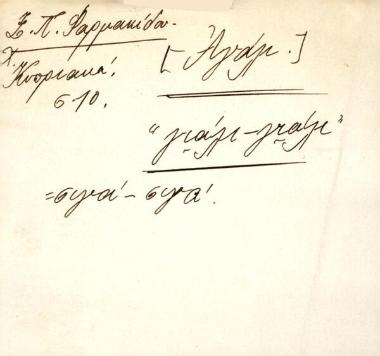 Ξ. Π. Φαρμακίδου.
Χ.
Κυπριακά,
610.
[Ἀγάλι.]
"γιάλι-γιάλι"
=σιγά - σιγά.